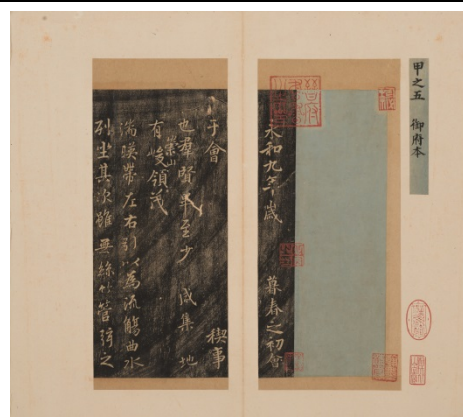 甲之五 御府本
永和九年歲 暮春之初會
于會 稧事
也羣賢畢至少 咸集 地
有崇山峻領茂
湍暎帶左右引以為流觴曲水
列坐其次雖無絲竹管弦之